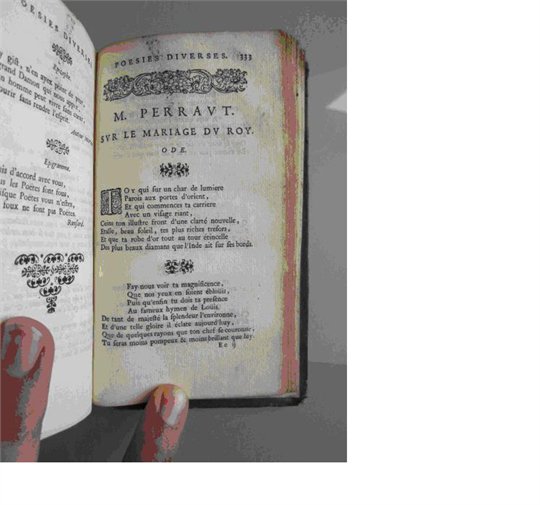 POESIES DIVERSE
Epitaphe.
y gist, n'en ayez point de peur,
grand Damon qui nous
n homme peut vivre sans cœur,
ourir sans rendre l'esprit.
Epigramme.
is d'accord avec vous,
us les Poëtes sont fous,
isque Poëtes vous n'estes,
foux ne sont pas Poëtes.
POESIES DIVERSES. 333
M. PERRAVT.
SVR LE MARIAGE DV ROY.
ODE.
TOy qui sur un char de lumiere
Parois aux portes d'orient,
Et qui commences ta carriere
Avec un visage riant,
Ceins ton illustre front d'une clarté nouvelle,
Estalle, beau soleil, tes plus riches tresors,
Et que ta robe d'or tout au tour étincelle
Des plus beaux diamans que l'Inde ait sur ses bords.
Fay nous voir ta magnificence,
Que nos yeux en soient éblouis,
Puis qu'enfin tu dois ta presence
Au fameux hymen de Louis.
De tant de majesté la splendeur l'environne,
Et d'une telle gloire il éclate aujourd'huy,
Que de quelques rayons que ton chef se couronne,
Tu seras moins pompeux & moins brillant que luy.
Ee ij